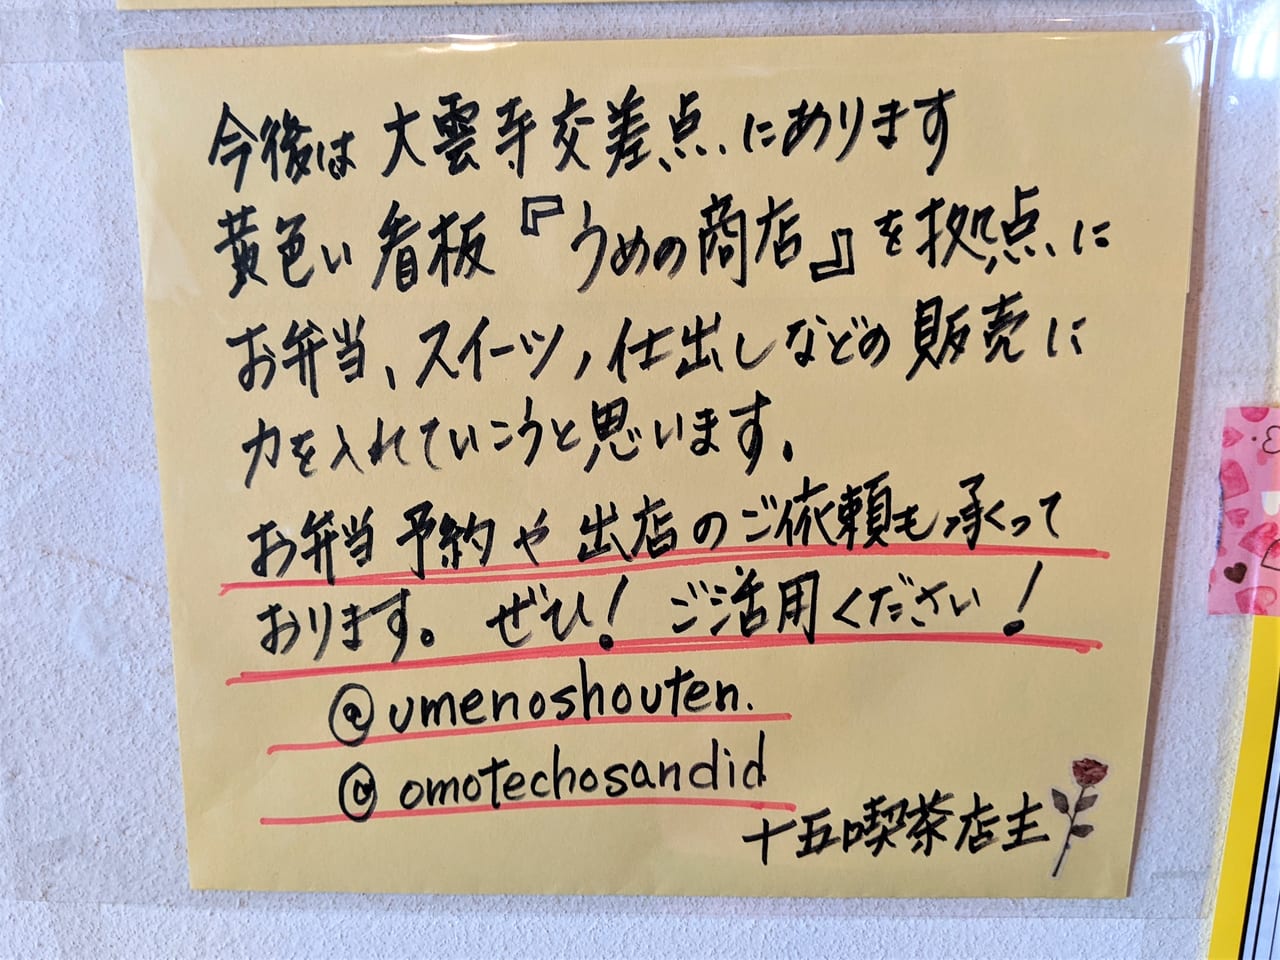 今後は大雲寺交差点にあります
黄色い看板『うめの商店』を拠点に
お弁当、スイーツ、仕出しなどの販売に
力を入れていこうと思います。
お弁当予約や出店のご依頼も承くって
おります。ぜひ！ご活用ください！
@umenoshouten.
@omotechosandid
十五喫茶店主